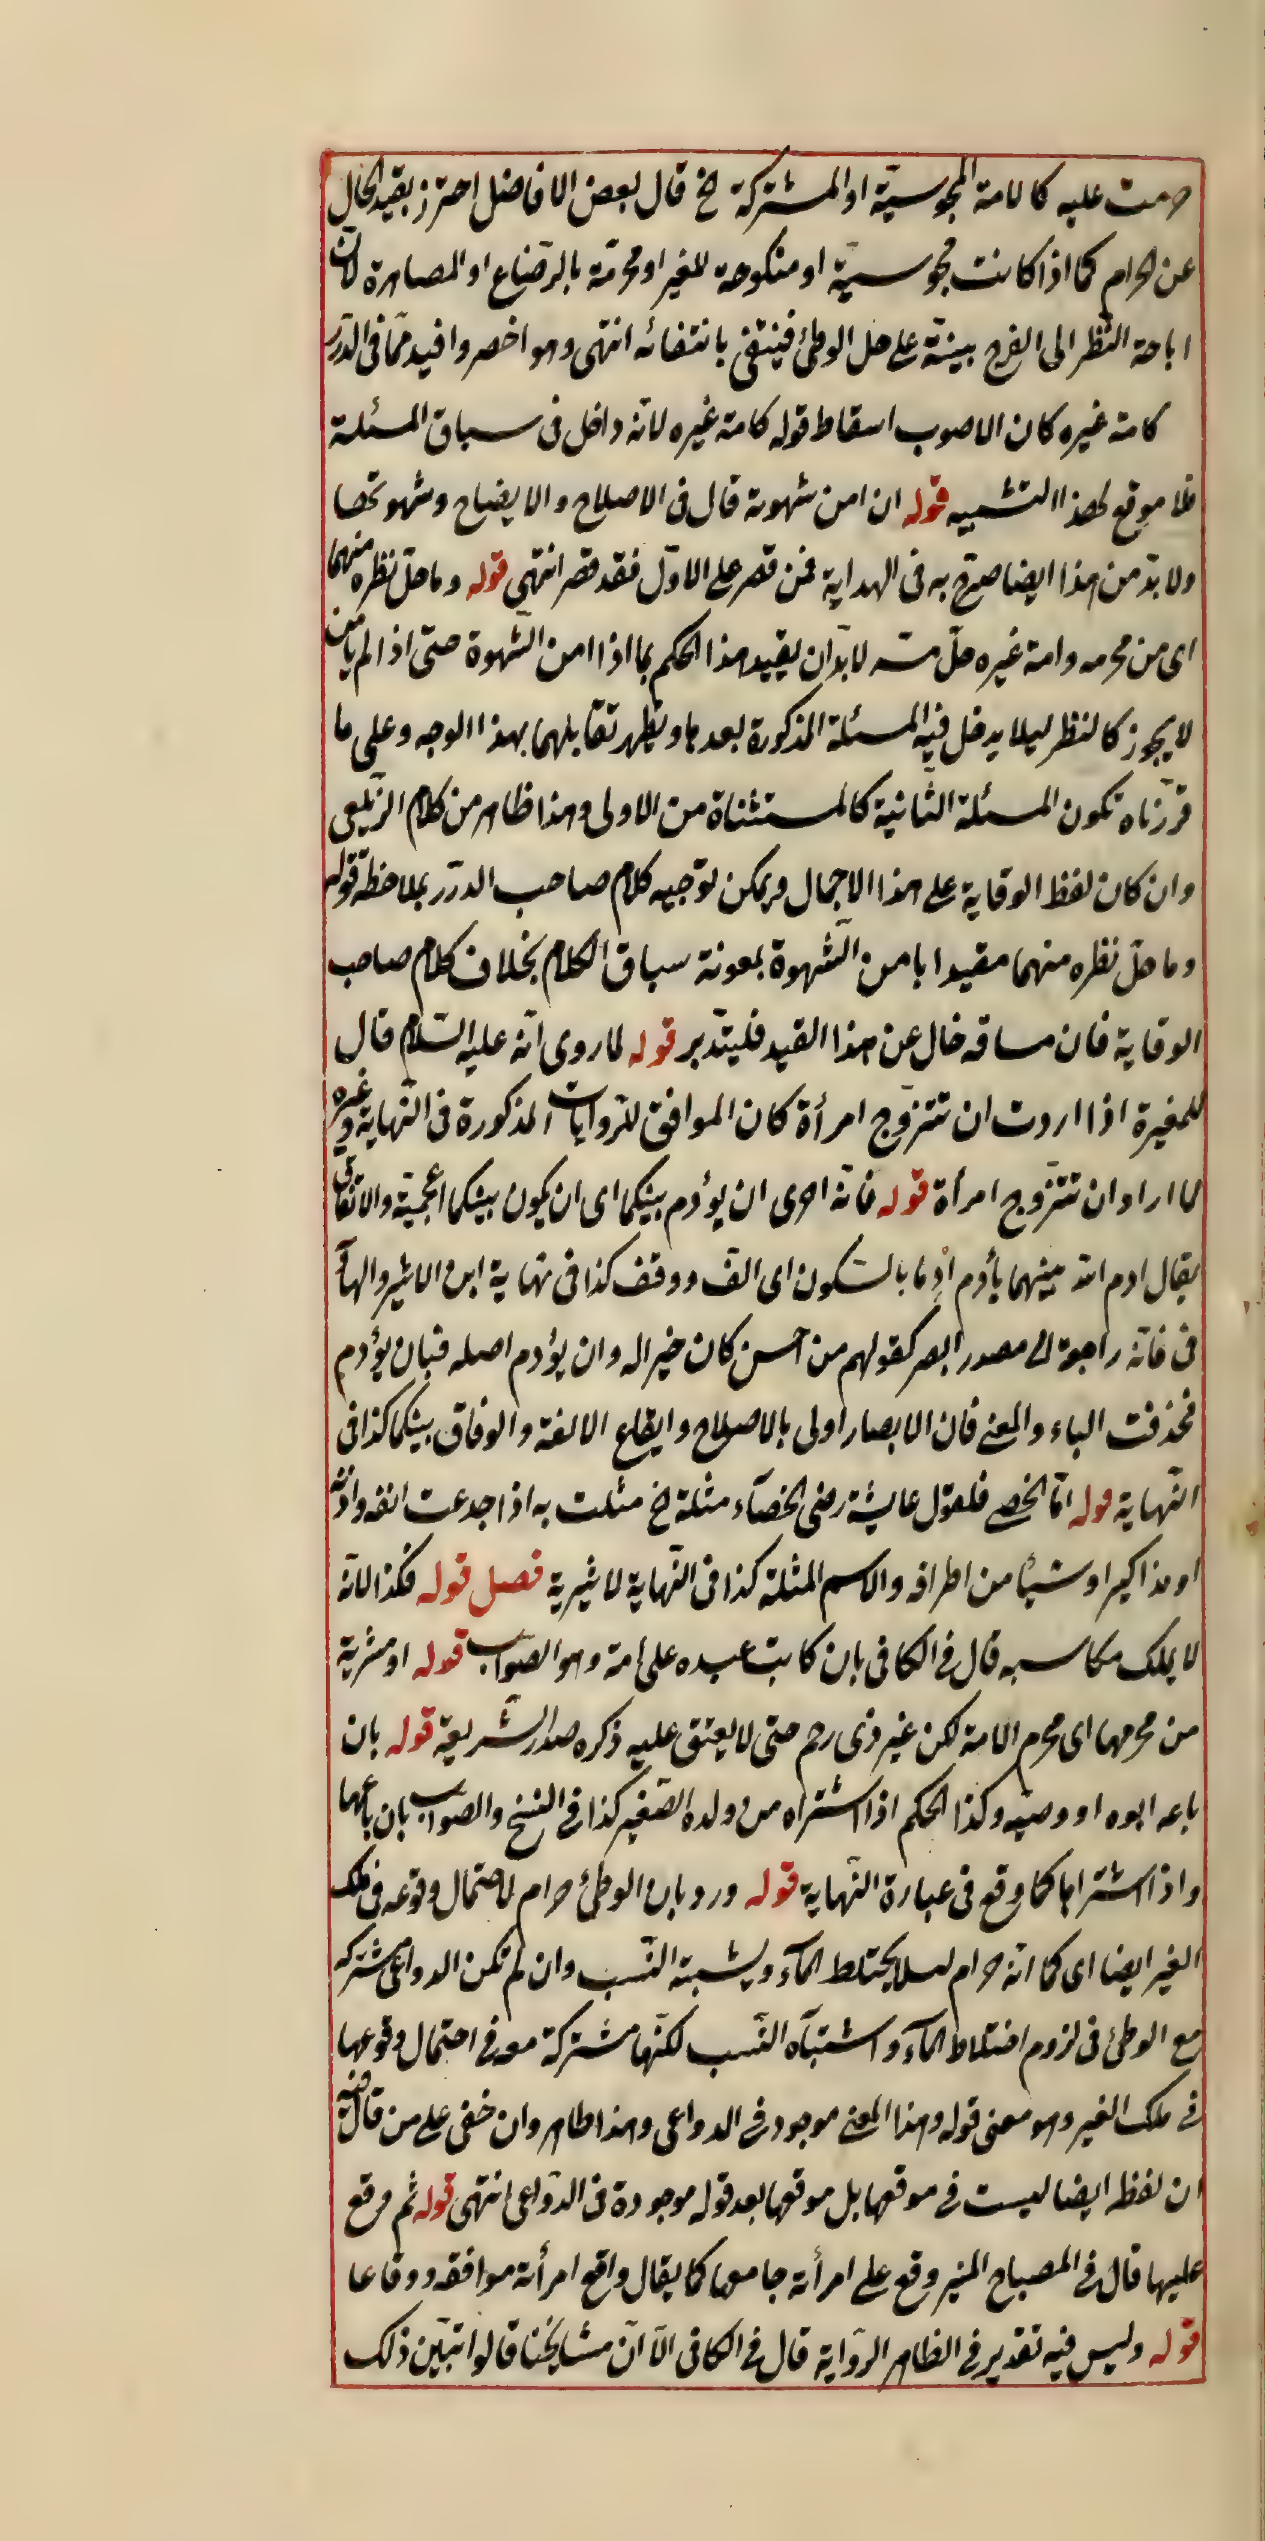 حرمت عليه كالامة المجوسيّة او المشتركة الخ قال بعض الافاضل احترز بقيد الحال
عن الحرام كما اذا كانت مجوسيّة او منكوحة للغير او محرّمة بالرّضاع او المصاهرة لانّ
اباحة النّظر الى الفرج مبنيّة على حل الوطئ فينتفى بانتفائه انتهى وهو اخصر وافيد ممّا فى الدّرر
كامة غيره كان الاصوب اسقاط قوله كامة غيره لانّه داخل فى سياق المسئلة
فلا موقع لهذا التشبيه قوله ان امن شهوته قال فى الاصلاح والايضاح وشهوتها
ولا بدّ من هذا ايضا صرّح به فى الهداية فمن قصر على الاوّل فقد قصر انتهى قوله وما حلّ نظره منهما
اى من محرمه وامة غيره حلّ مسّه لا بدّ ان يقيد هذا الحكم بما اذا امن الشّهوة حتّى اذا لم يأمن
لا يجوز كالنظر ليلا يدخل فيه المسئلة المذكورة بعدها ويظهر تقابلهما بهذا الوجه وعلى ما
قرّرناه تكون المسئلة الثّانية كالمستثناة من الاولى وهذا ظاهر من كلام الزّيلعى
وان كان لفظ الوقاية على هذا الاجمال ويمكن توجيه كلام صاحب الدّرر بملاحظة قوله
وما حلّ نظره منهما مقيدا بامن الشّهوة بمعونة سياق الكلام بخلاف كلام صاحب
الوقاية فان مساقه خال عن هذا القيد فليتدّبر قوله لما روى انّه عليه السّلام قال
للمغيرة اذا اردت ان تتزوّج امرأة كان الموافق للرّوايات المذكورة فى النّهاية وغيره
لما اراد ان تتزوّج امرأة قوله فانّه احرى ان يؤدم بينكما اى ان يكون بينكما المحبّة والاتّفاق
يقال ادم الله بينهما يأدم ادما بالسّكون اى الّف ووفف كذا فى نهاية ابن الاثير والهآء
فى فانّه راجعة الى مصدر ابصر كقولهم من احسن كان خيرا له وان يؤدم اصله فبان يؤدم
فحذفت الباء والمعنى فان الابصار اولى بالاصلاح وايقاع الالفة والوفاق بينكما كذا فى
النّهاية قوله امّا الخصى فلقول عايشة رضى الخصآء مثلة الخ مثلت به اذا جدعت انفه واذنه
او مذاكيره او شيئا من اطرافه والاسم المثلة كذا فى النّهاية لاثيرية فصل قوله فكذا لانّه
لا يملك مكاسبه قال فى الكافى بان كاتب عبده على امة وهو الصّواب قوله او مشرية
من محرمها اى محرم الامة لكن غير ذى رحم حتّى لا يعتق عليه ذكره صدر الشّريعة قوله بان
باعه ابوه او وصيّه وكذا الحكم اذا اشتراه من ولده الصّغير كذا فى النسخ والصواب بان باعها
واذا اشتراها كما وقع فى عبارة النّهاية قوله ورد بان الوطئ حرام لاحتمال وقوعه فى ملك
الغير ايضا اى كما انّه حرام لئلا يختلط المآء ويشتبه النّسب وان لم تكن الدواعى مشتركة
مع الوطئ فى لزوم اختلاط المآء واشتباه النّسب لكنّها مشتركة معه فى احتمال وقوعها
فى ملك الغير وهو معنى قوله وهذا المعنى موجود فى الدواعى وهذا ظاهر وان خفى على من قال فيه
ان لفظ ايضا ليست فى موقعها بل موقعها بعد قوله موجودة فى الدّواعى انتهى قوله ثم وقع
عليها قال فى المصباح المنير وقع على امرأته جامعها كما يقال واقع امرأته مواقعة ووقاعا
قوله وليس فيه تقدير فى الظاهر الرّواية قال فى الكافى الّا انّ مشايخنا قالوا تبيّن ذلك